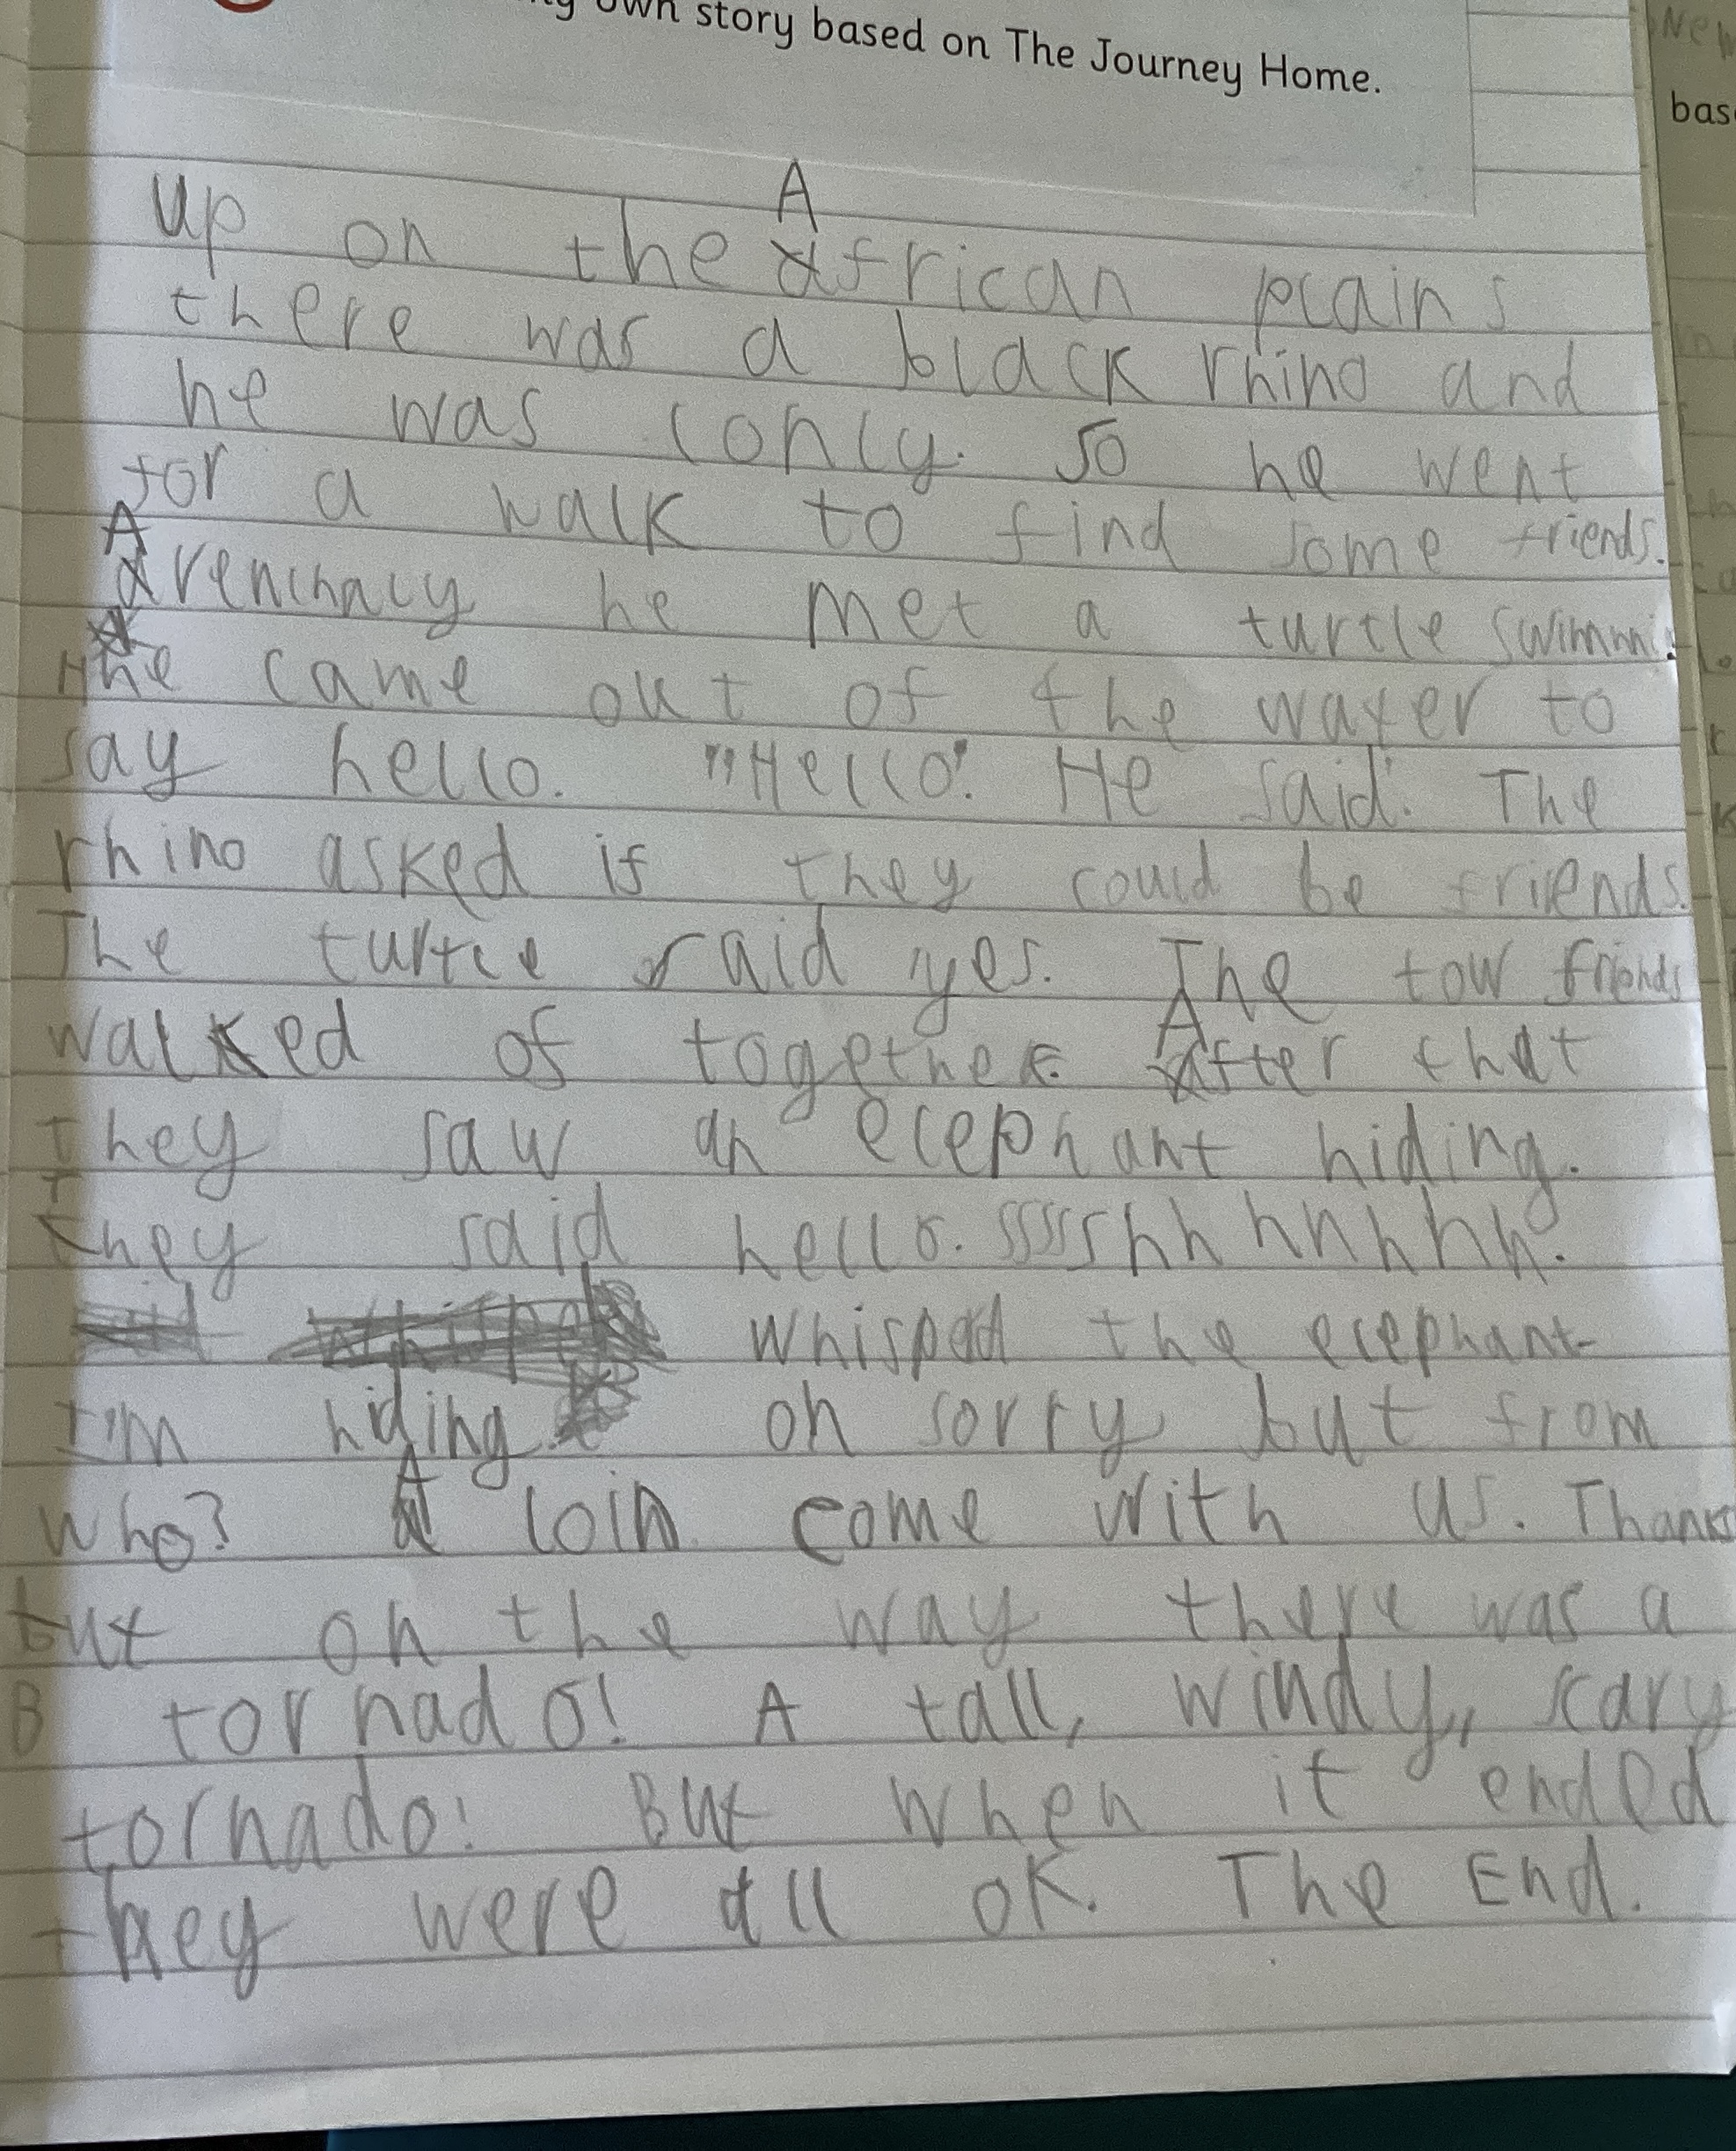 own story based on The Journey Home.
up on the African plains
there was a black rhino and
he was lonly. so he went
for a walk to find some friends.
Avenchaly he met a turtle swimmi
He came out of the water to
say hello. "Hello". He said. The
rhino asked if they could be friends.
The turtle said yes. The tow friends
walked of together. After that
they saw an elephant hiding.
They said hello. sssssshhhhhhh.
whisped the elephant
I'm hiding. oh sorry but from
who? A loin come with us. Thanks
But on the way there was a
tornado! A tall, windy, scary
tornado! But when it ended
they were all ok. The End.
bas